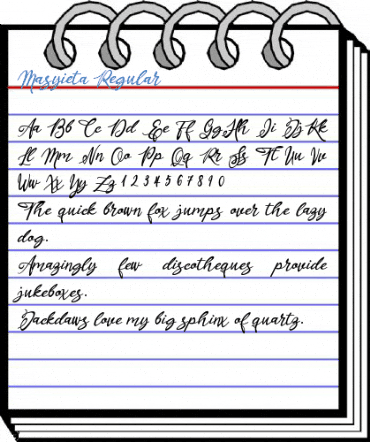 Masyieta Regular
Aa Bb Cc Dd Ee Ff Gg Hh Ii Jj Kk
Ll Mm Nn Oo Pp Qq Rr Ss Tt Uu Vv
Ww Xx Yy Zz 1 2 3 4 5 6 7 8 9 0
The quick brown fox jumps over the lazy
dog.
Amazingly few discotheques provide
jukeboxes.
Jackdaws love my big sphinx of quartz.